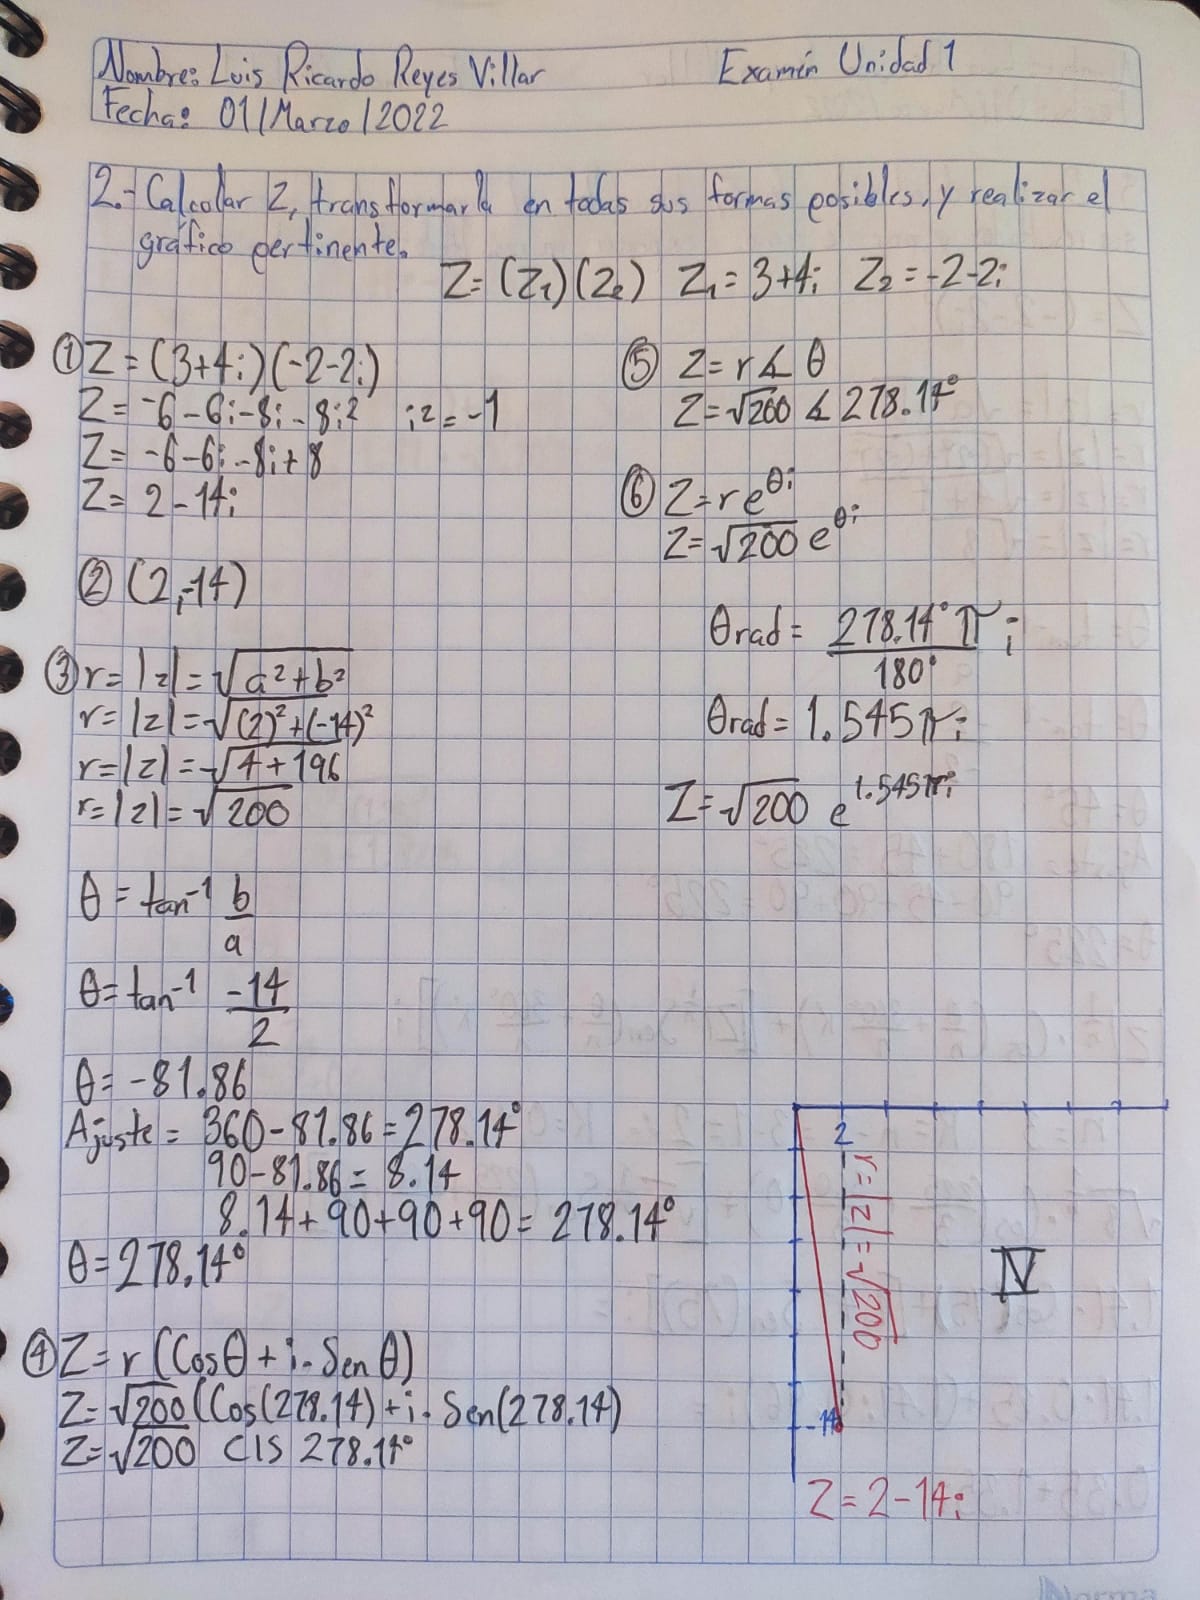 Nombre: Luis Ricardo Reyes Villar Examén Unidad 1
Fecha: 01/Marzo/2022
2.- Calcular Z, transformarla en todas sus formas posibles, y realizar el
gráfico pertinente.
Z = (Z₁)(Z₂) Z₁ = 3+4i Z₂ = -2-2i
① Z = (3+4i)(-2-2i)
Z = -6-6i-8i-8i² i² = -1
Z = -6-6i-8i+8
Z = 2-14i
② (2,-14)
③ r = |z| = √a²+b²
r = |z| = √(2)²+(-14)²
r = |z| = √4+196
r = |z| = √200
θ = tan⁻¹ b/a
θ = tan⁻¹ -14/2
θ = -81.86
Ajuste = 360-81.86 = 278.14°
90-81.86 = 8.14
8.14+90+90+90 = 278.14°
θ = 278.14°
④ Z = r (Cosθ + i. Sen θ)
Z = √200 (Cos(278.14) + i. Sen(278.14)
Z = √200 CIS 278.14°
⑤ Z = r ∡ θ
Z = √200 ∡ 278.14°
⑥ Z = r e^θi
Z = √200 e^θi
θrad = 278.14° π/180° i
θrad = 1.545π i
Z = √200 e^1.545πi
2
r = |z| = √200
IV
-14
Z = 2-14i
Norma